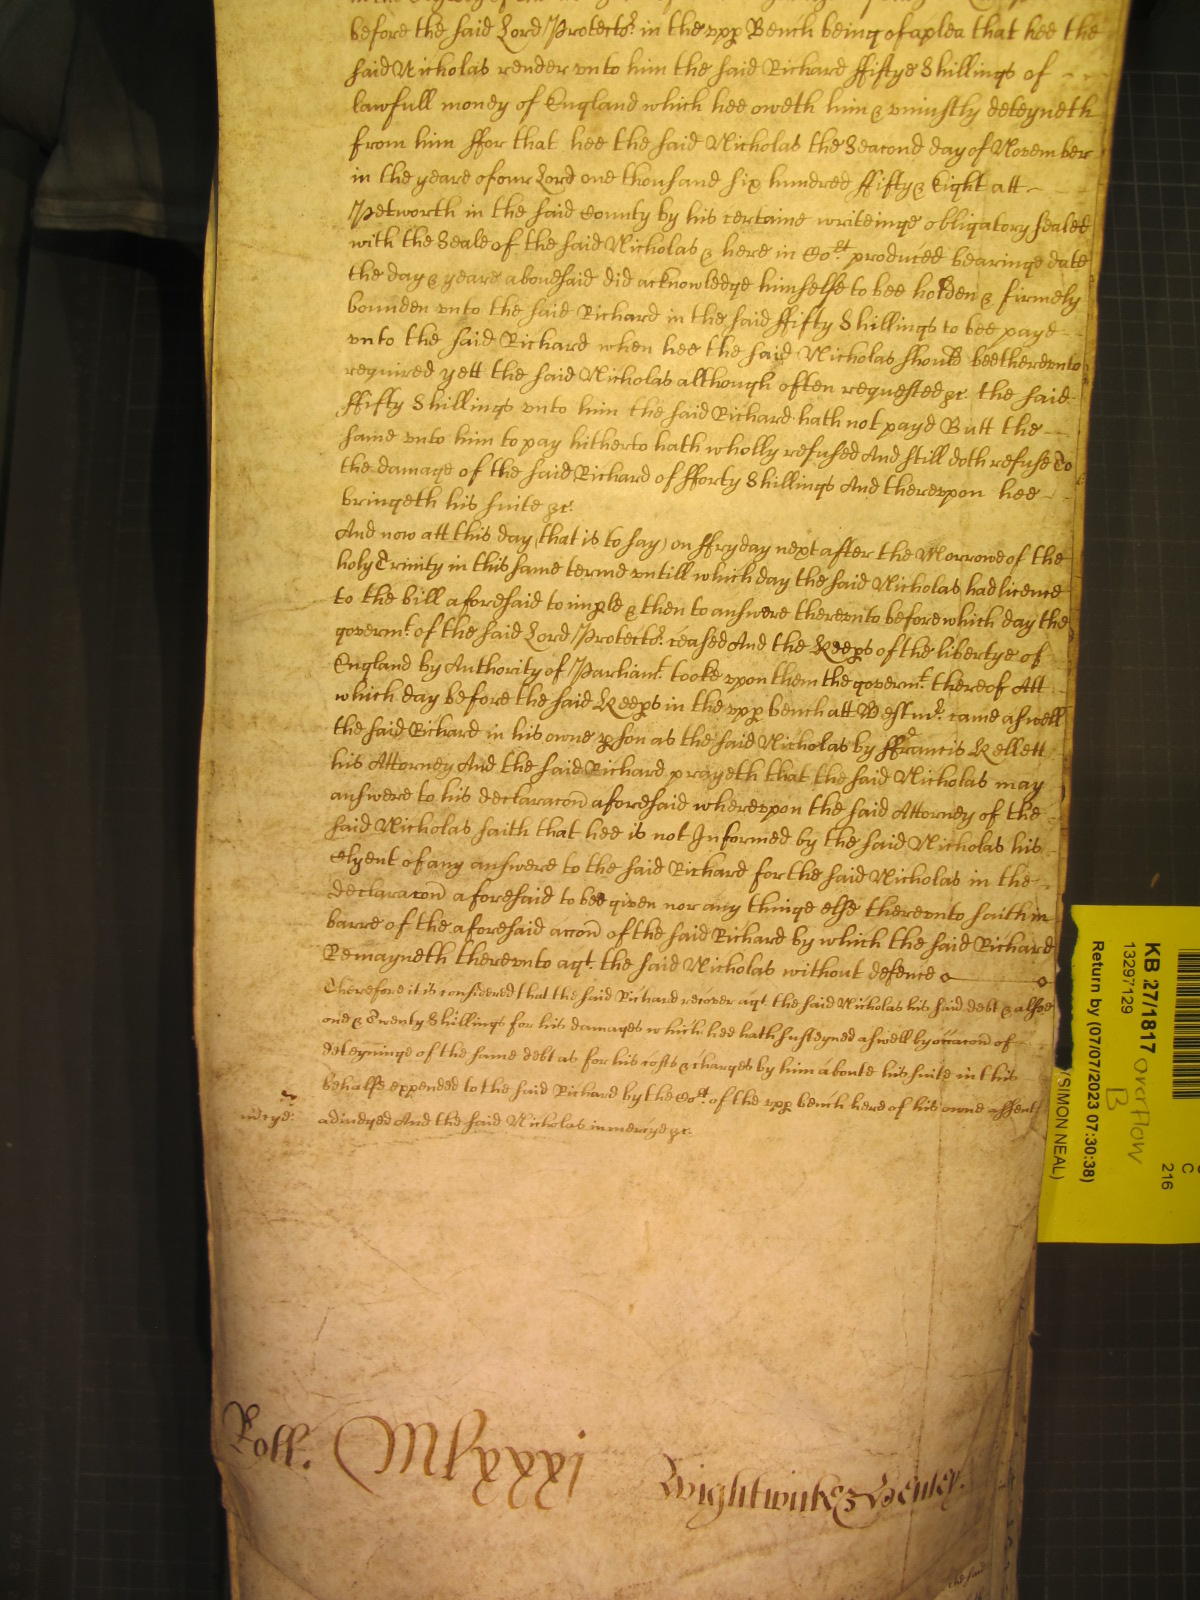 before the said Lord Protector. in the upp Bench being of a plea that hee the
said Nicholas render vnto him the said Richard ffiftye Shillings of
lawfull money of England which hee oweth him & vniustly deteyneth
from him ffor that hee the said Nicholas the Seacond day of November
in the yeare of our Lord one thousand six hundred ffifty & Eight att
Petworth in the said County by his certaine writeinge obligatory sealed
with the Seale of the said Nicholas & here in Cort produced bearinge date
the day & yeare abouesaid did acknowledge himselfe to bee holden & firmely
bounden vnto the said Richard in the said ffifty Shillings to bee payd
vnto the said Richard when hee the said Nicholas should bee therevnto
required yett the said Nicholas although often requested &c. the said
ffifty Shillings vnto him the said Richard hath not payd Butt the
same vnto him to pay hitherto hath wholly refused And still doth refuse To
the damage of the said Richard of fforty Shillings And therevpon hee
bringeth his suite &c.
And now att this day (that is to say) on ffryday next after the Morrowe of the
holy Trinity in this same terme vntill which day the said Nicholas had licence
to the bill aforesaid to imple & then to answere therevnto before which day the
governt. of the said Lord Protectr. ceased And the Keeps of the libertye of
England by Authority of Parliamt. tooke vpon them the govermt. thereof Att
which day before the said Keeps in the vpp bench att Westmr. came aswell
the said Richard in his owne pson as the said Nicholas by ffrancis Kellett
his Attorney And the said Richard prayeth that the said Nicholas may
answere to his declaracon aforesaid wherevpon the said Attorney of the
said Nicholas saith that hee is not Informed by the said Nicholas his
Clyent of any answere to the said Richard for the said Nicholas in the
declaracon aforesaid to bee given nor any thinge else therevnto saith in
barre of the aforesaid accon of the said Richard by which the said Richard
Remayneth therevnto agt. the said Nicholas without defence
Therefore it is considered that the said Richard recover agt. the said Nicholas his said debt & alsoe
one & Twenty Shillings for his damages which hee hath susteyned aswell by occacon of
deteyninge of the same debt as for his costs & charges by him aboute his suite in this
behalfe expended to the said Richard by the Cort. of the vpp bench here of his owne assent
adiudged And the said Nicholas in mercye &c.
Roll. Mlxxxj
Wightwicke & Henley.
KB 27/1817 overflow
13297129
B
Return by (07/07/2023 07:30:38)
(SIMON NEAL)
C
216